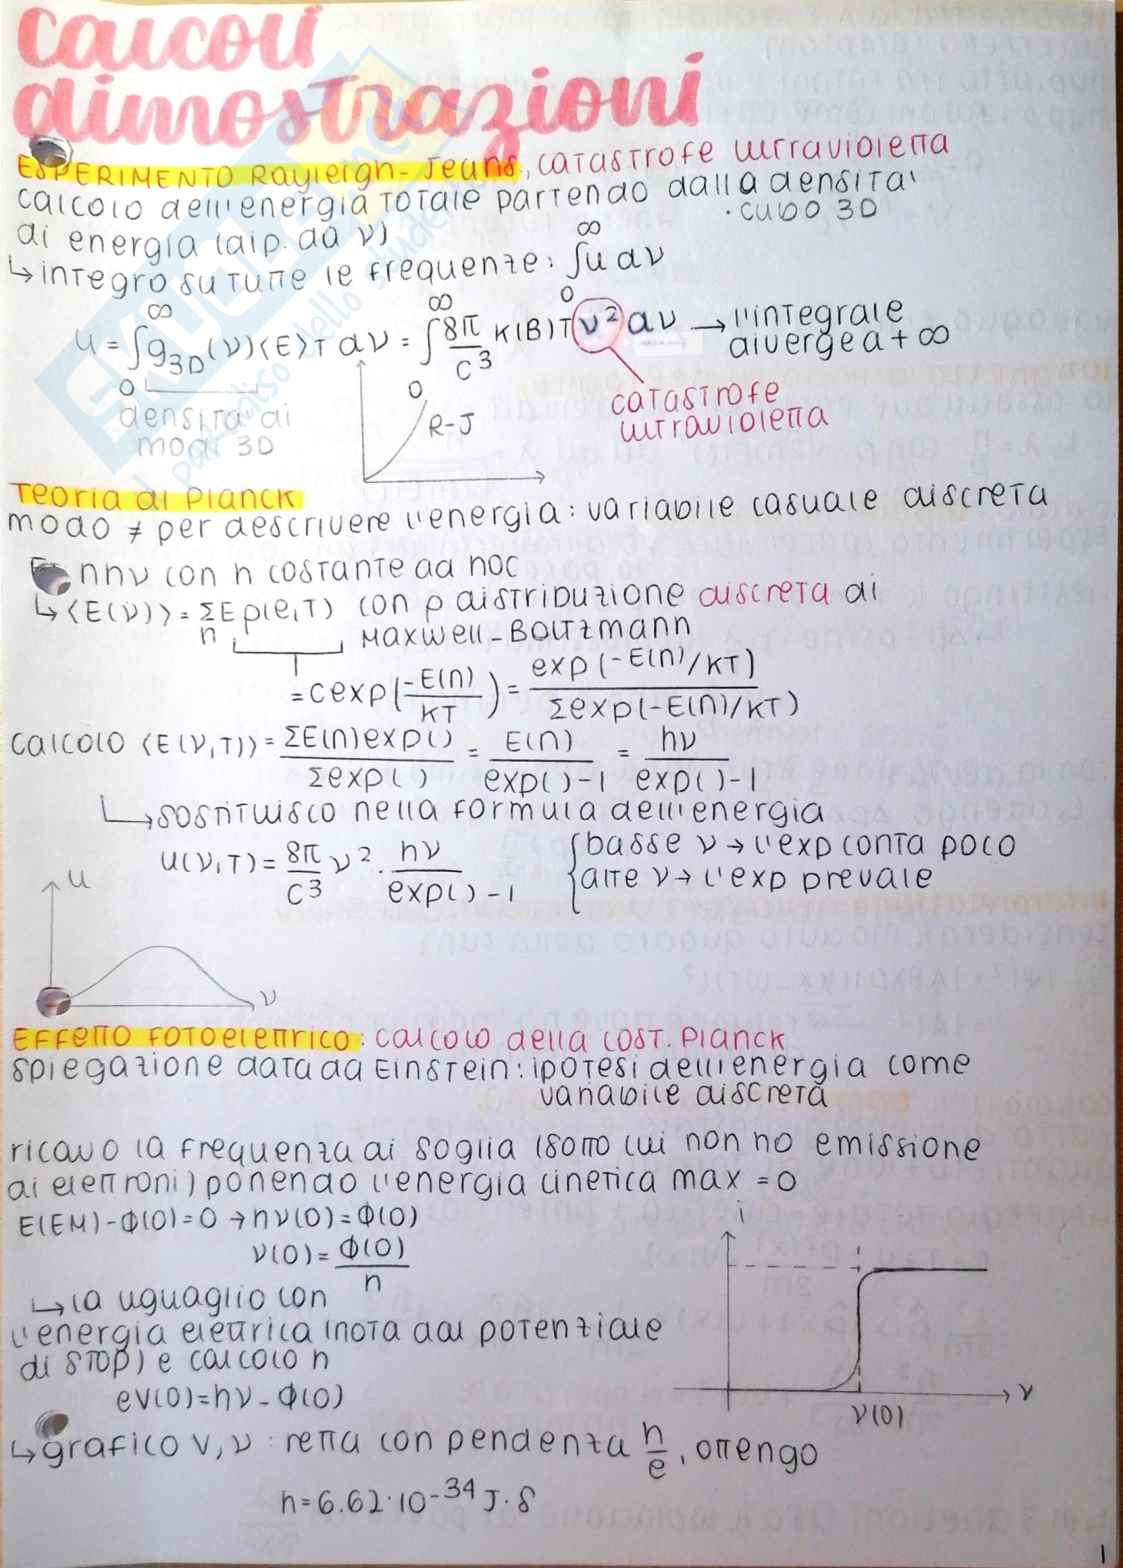 calcoli
dimostrazioni
ESPERIMENTO Rayleigh-Jeans, CATASTROFE ultravioletta
calcolo dell'energia totale partendo dalla densità
di energia (dip. da ν) · cubo 3D
↳ integro su tutte le frequenze: ∫₀^∞ u dν
u = ∫₀^∞ g₃D(ν)⟨E⟩T dν = ∫₀^∞ 8π/c³ K(B)T ν² dν → l'integrale
diverge a +∞
densità di
modi 3D
R-J
catastrofe
ultravioletta
Teoria di Planck
modo ≠ per descrivere l'energia: variabile casuale discreta
nhν con h costante ad hoc
↳ ⟨E(ν)⟩ = Σₙ E p(e,T) con p distribuzione discreta di
Maxwell-Boltzmann
= c exp(-E(n)/KT) = exp(-E(n)/KT) / Σexp(-E(n)/KT)
calcolo ⟨E(ν,T)⟩ = ΣE(n)exp() / Σexp() = E(n) / exp()-1 = hν / exp()-1
↳ sostituisco nella formula dell'energia
u(ν,T) = 8π/c³ ν² · hν / exp()-1 { basse ν → l'exp conta poco
alte ν → l'exp prevale
u
ν
Effetto fotoelettrico: calcolo della cost. Planck
spiegazione data da Einstein: ipotesi dell'energia come
variabile discreta
ricavo la frequenza di soglia (sotto cui non ho emissione
di elettroni) ponendo l'energia cinetica max = 0
E(EM)-Φ(0)=0 → hν(0)=Φ(0)
ν(0) = Φ(0)/h
↳ la uguaglio con
l'energia elettrica (nota dal potenziale
di stop) e calcolo h
eV(0)=hν-Φ(0)
i
ν
ν(0)
↳ grafico V,ν: retta con pendenza h/e, ottengo
h=6.62·10⁻³⁴ J·s
1